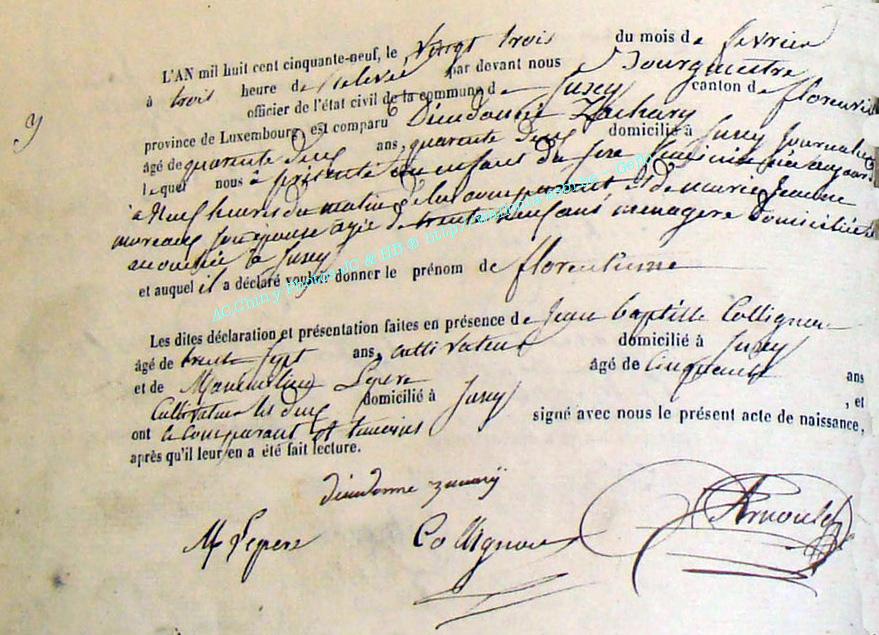 9
L'AN mil huit cent cinquante-neuf, le vingt trois du mois de fevrier
à trois heure de relevée par devant nous Bourgmestre
officier de l'état civil de la commune de Jusey canton de florenville
province de Luxembourg, est comparu Dieudonné Zachary
âgé de quarante deux ans, quarante deux domicilié à Jusey Journalier
lequel nous a présenté un enfant du sexe feminin née aujourd
à neuf heures du matin de lui comparant et de marie Jeanne
moreaux son épouse agée de trente neuf ans menagere domiciliée
accouchée à Jusey
et auquel il a déclaré vouloir donner le prénom de florentienne
AC Chiny Photos JC & HB © http://
Les dites déclaration et présentation faites en présence de Jean baptiste Collignon
âgé de trente sept ans, cultivateur domicilié à Jusey
et de Maximilien Lepere âgé de Cinquante ans
Cultivateur les deux domicilié à Jusey , et
ont le comparant et temoins signé avec nous le présent acte de naissance,
après qu'il leur en a été fait lecture.
dieudonne zacary
M Lepere Collignon Arnould